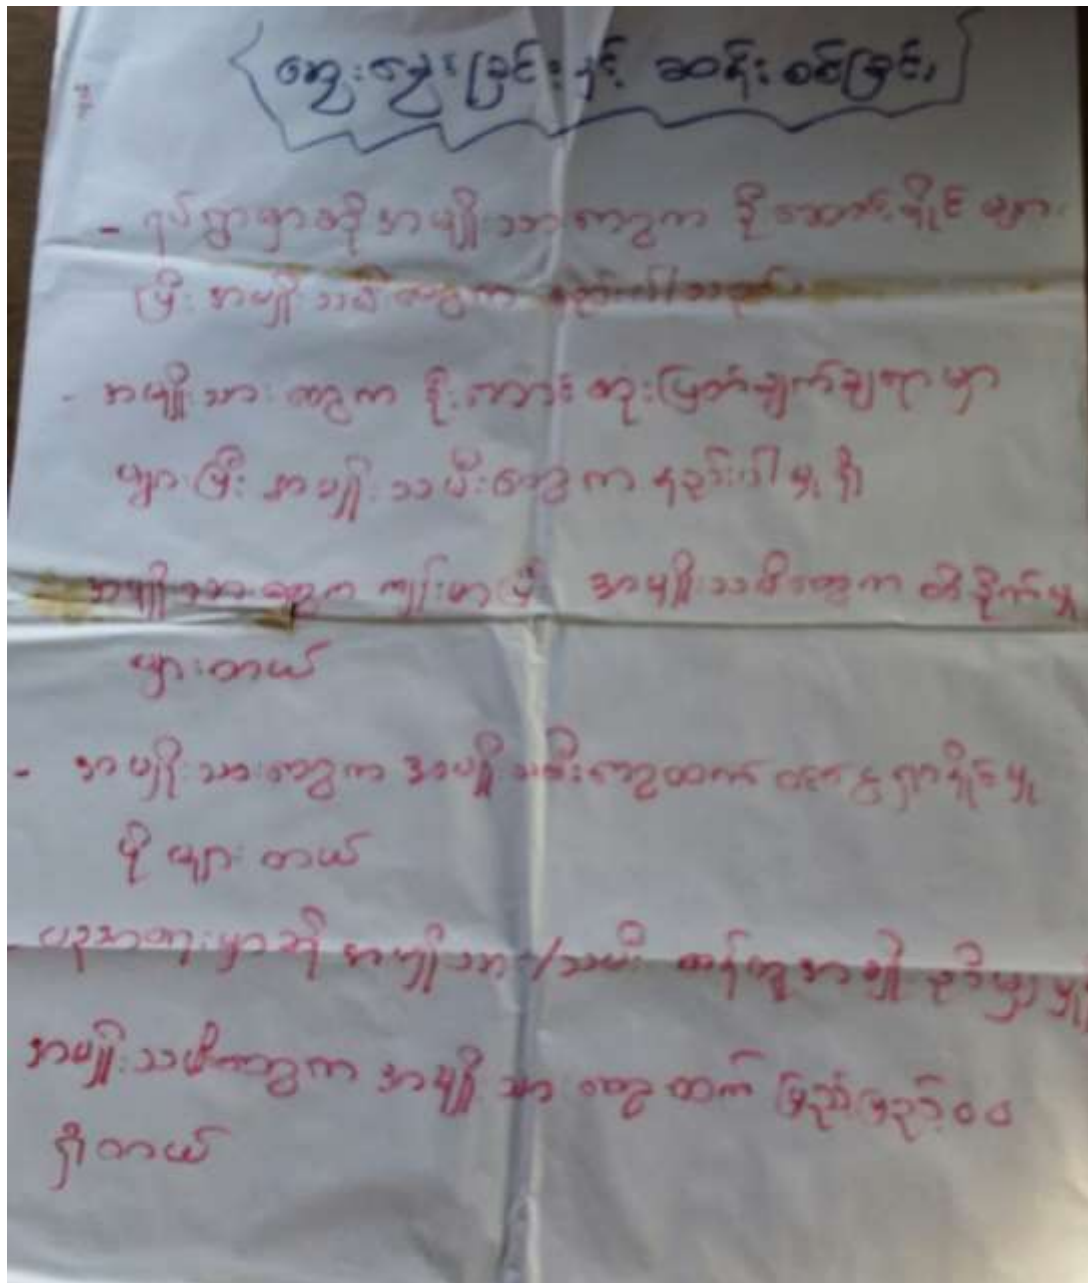 ဆွေးနွေးခြင်းနှင့် ဆန်းစစ်ခြင်း
- ရပ်ရွာမှာဆို အမျိုးသားတွေက ဦးဆောင်နိုင် များ
ပြီး အမျိုးသမီးတွေက နည်းပါးသည်။
- အမျိုးသားတွေက ဦးဆောင် ဆုံးဖြတ်ချက်ချရာမှာ
များပြီး အမျိုးသမီးတွေက နည်းပါးမှုရှိ
အမျိုးသားတွေက ကျန်းမာပြီး အမျိုးသမီးတွေက ထိခိုက်မှု
များတယ်
- အမျိုးသားတွေက အမျိုးသမီးတွေထက် ငွေရှာနိုင်မှု
ပို များ တယ်
- ပညာရေးမှာဆို အမျိုးသား/သမီး တန်းတူအချို့ ညီမျှမှုရှိ
အမျိုးသမီးတွေက အမျိုးသား တွေထက် ပြည့်ပြည့်ဝဝ
ရှိတယ်